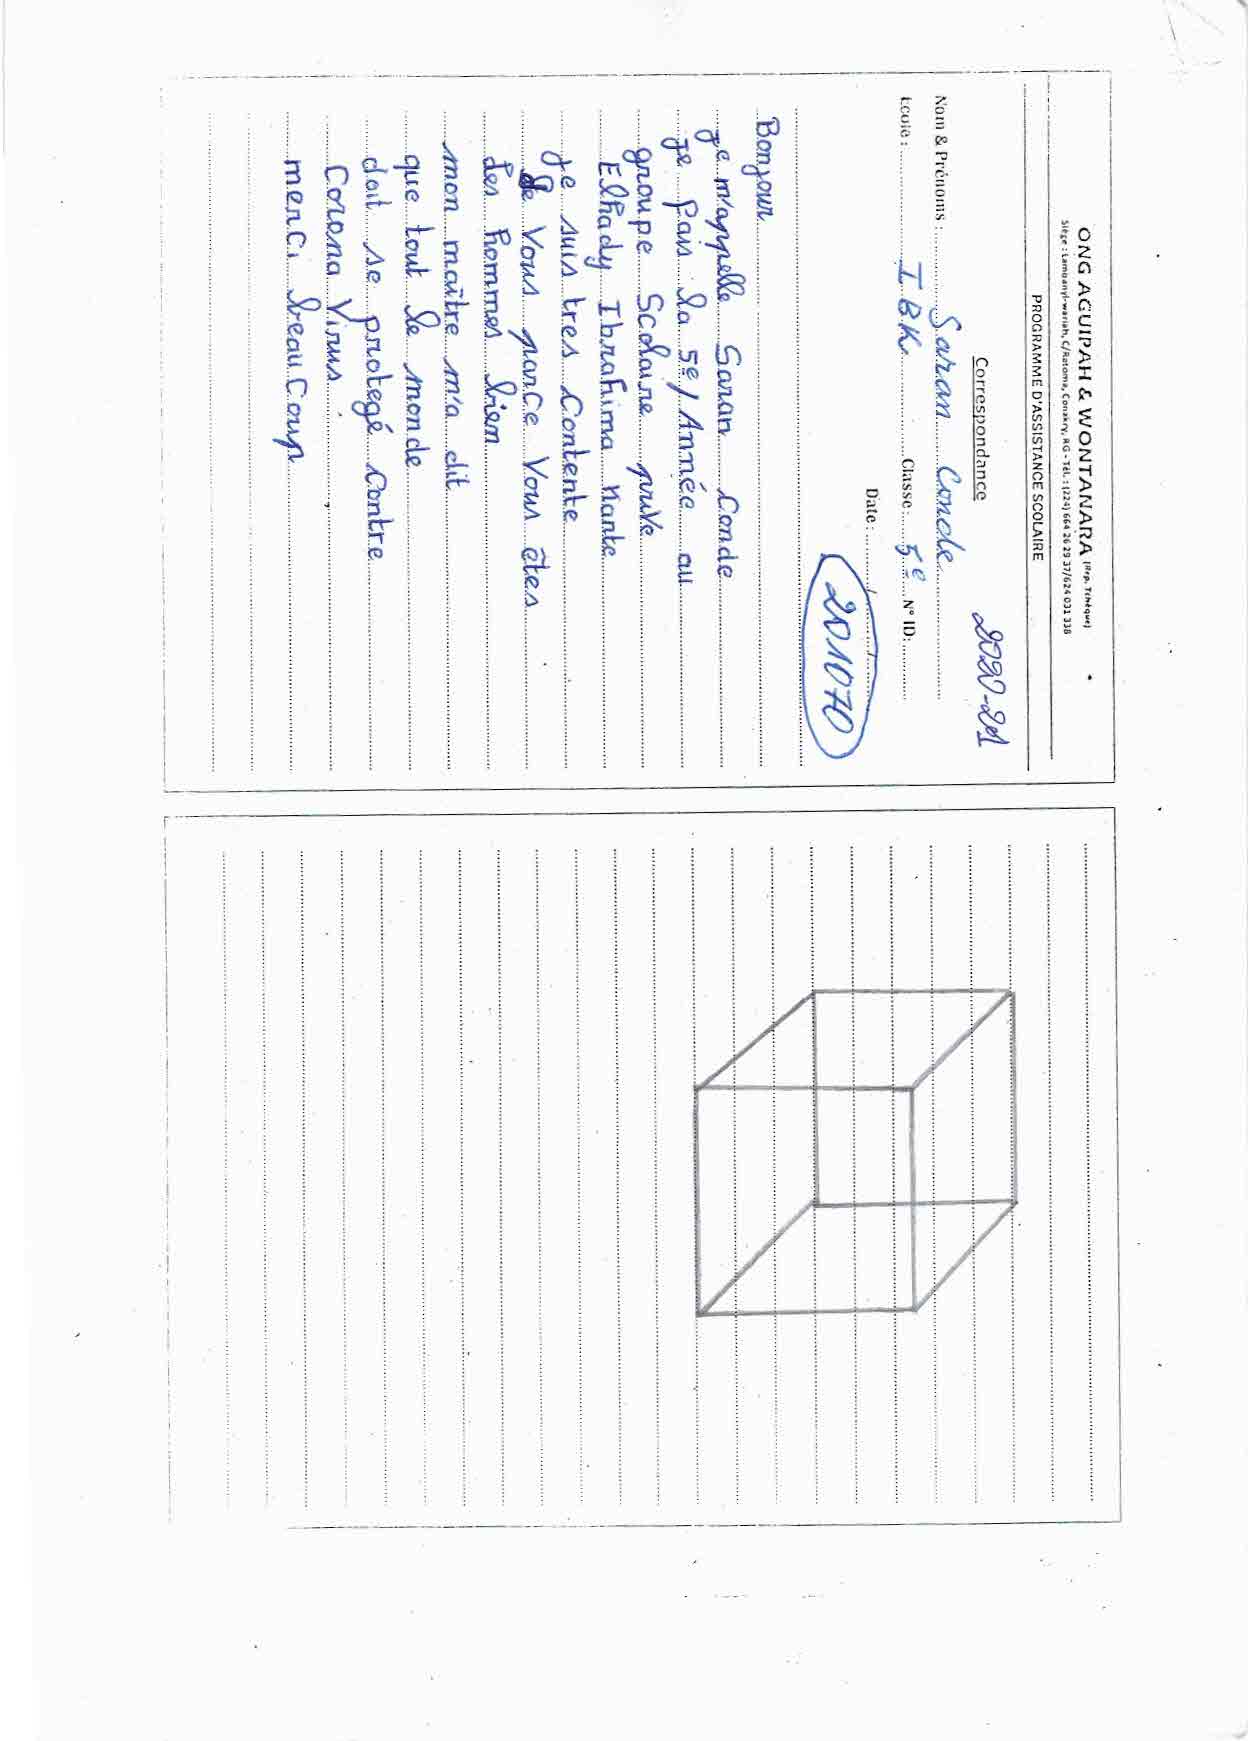 ONG AGUIPAH & WONTANARA (Rép. Tchèque)
Siège : Lambanyi-wariah, C/Ratoma, Conakry, RG - Tél. : (224) 664 26 29 37/624 031 338
PROGRAMME D'ASSISTANCE SCOLAIRE
2020-21
Correspondance
Nom & Prénoms : Saran Conde
Ecole : I BK Classe : 5e N° ID:
Date : / /
201070
Bonjour
Je m'appelle Saran Conde
Je fais la 5e/Année au
groupe Scolaire privé
Elhady Ibrahima Kante
Je suis tres Contente
de Vous parce Vous êtes
des hommes bien
mon maître m'a dit
que tout le monde
doit se protegé Contre
Corona Virus
merci beau Coup